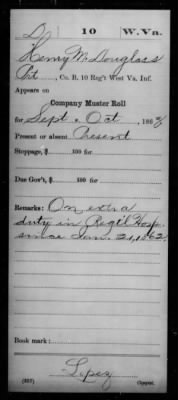 D | 10 | W. Va.
Henry M. Douglass
Pvt., Co. B, 10 Reg't West Va. Inf.
Appears on
Company Muster Roll
for Sept. & Oct., 1862
Present or absent Present
Stoppage, $ 100 for
Due Gov't, $ 100 for
Remarks: On extra
duty in Regt'l Hosp.
since Jan. 21, 1862.
Book mark:
Lopez
(357) Copyist.